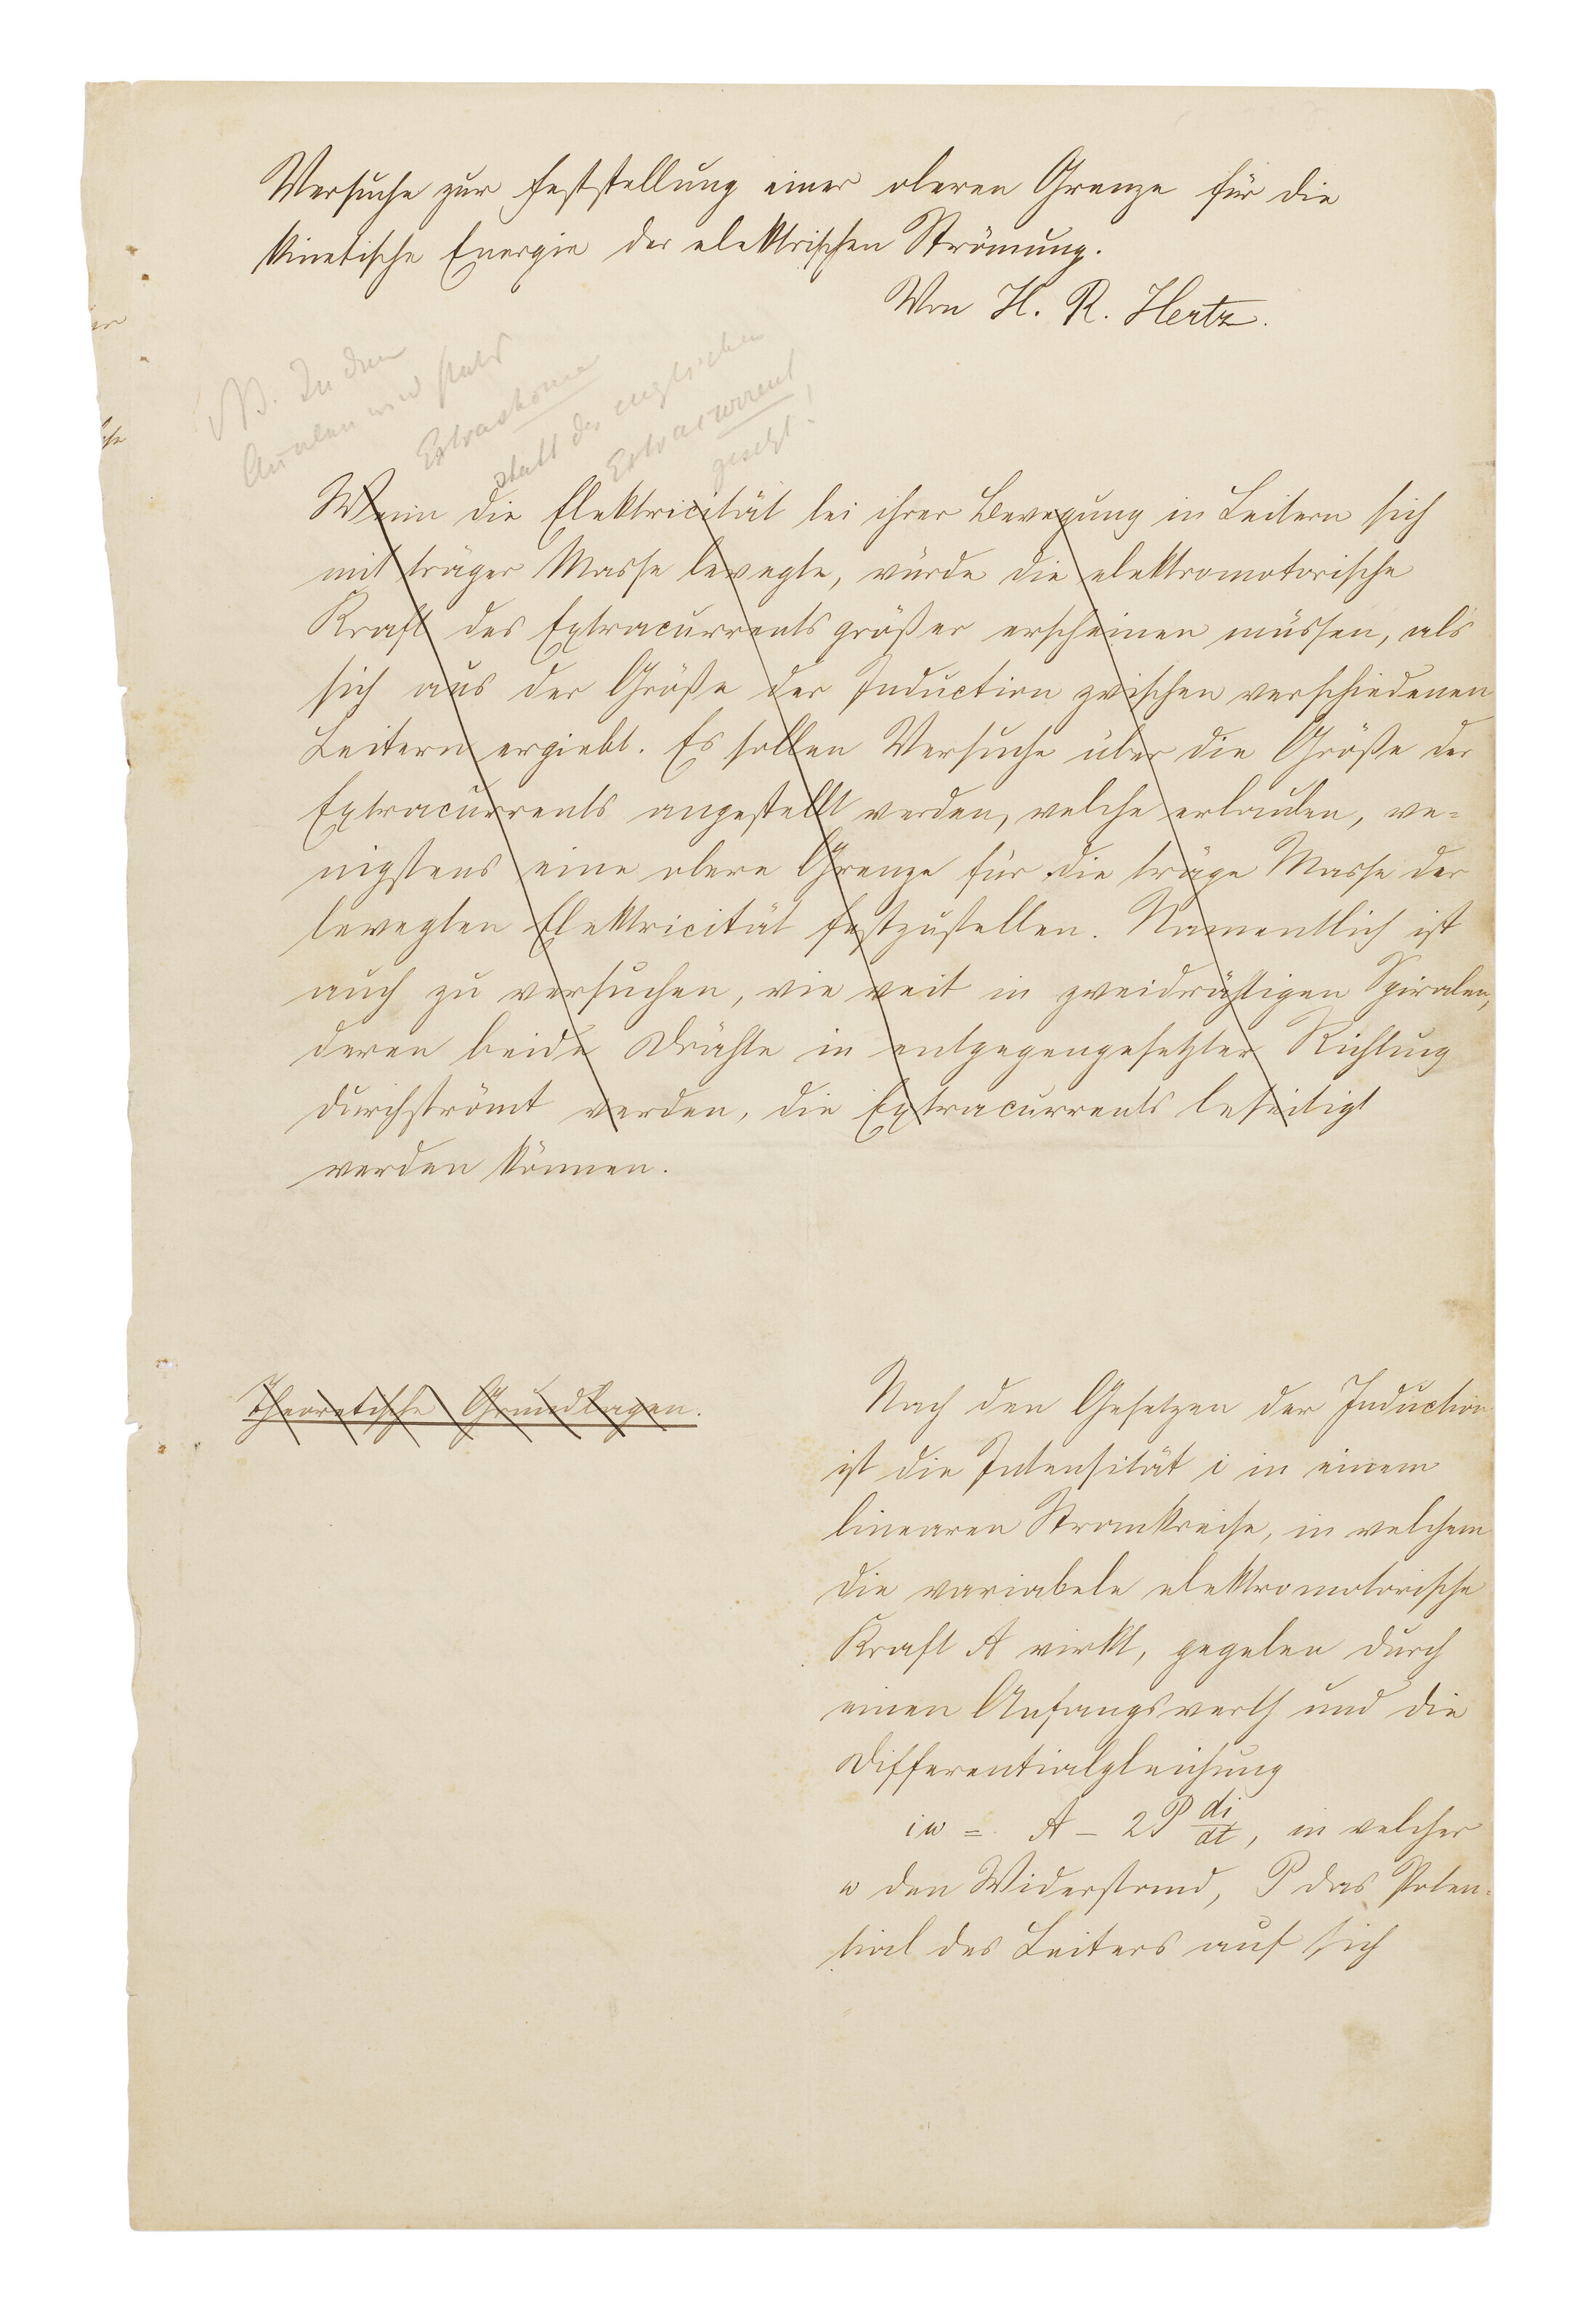 Versuche zur Feststellung einer oberen Grenze für die
kinetische Energie der elektrischen Strömung.
Von H. R. Hertz.
NB. In den
Annalen wird stets
Extraströme
statt des englischen
Extracurrent
gesetzt.
Wenn die Elektricität bei ihrer Bewegung in Leitern sich
mit träger Masse bewegte, würde die elektromotorische
Kraft des Extracurrents größer erscheinen müssen, als
sich aus der Größe der Induction zwischen verschiedenen
Leitern ergiebt. Es sollen Versuche über die Größe des
Extracurrents angestellt werden, welche erlauben, we=
nigstens eine obere Grenze für die träge Masse der
bewegten Elektricität festzustellen. Namentlich ist
auch zu versuchen, wie weit in zweidrähtigen Spiralen,
deren beide Drähte in entgegengesetzter Richtung
durchströmt werden, die Extracurrents beseitigt
werden können.
Theoretische Grundlagen.
Nach den Gesetzen der Induction
ist die Intensität i in einem
linearen Stromkreise, in welchem
die variabele elektromotorische
Kraft A wirkt, gegeben durch
einen Anfangswerth und die
Differentialgleichung
iw = A – 2P di/dt, in welcher
w den Widerstand, P das Poten=
tial des Leiters auf sich